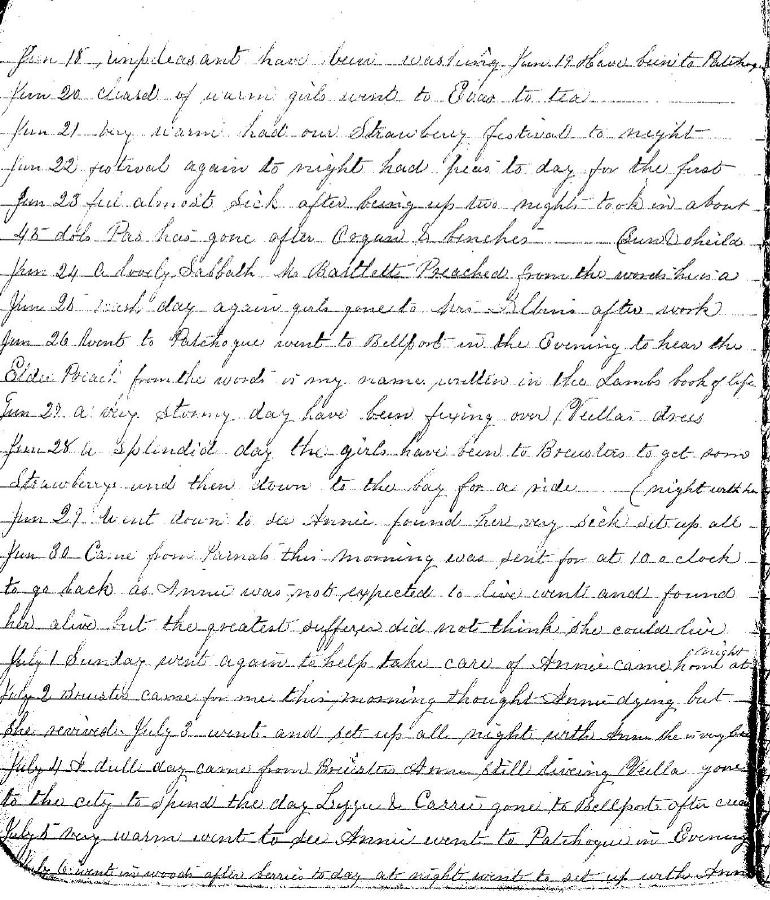 Jun 18 unpleasant have been washing Jun 19 Have been to Patchogue
Jun 20 cleard of warm girls went to Evas to tea
Jun 21 very warm had our Strawbery festival to night
Jun 22 festival again to night had peas to day for the first
Jun 23 feel almost sick after being up two nights took in about
45 dols Pas has gone after Organ & benches
Jun 24 a lovely Sabbath Mr Bartlett Preached from the words he is a
Jun 25 wash day again girls gone to Mrs after work
Jun 26 Went to Patchogue went to Bellport in the Evening to hear the
Elder Preach from the words is my name written in the Lambs book of life
Jun 27 a very stormy day have been fixing over Vellas dress
Jun 28 a splendid day the girls have been to Brewsters to get some
Strawberys and then down to the bay for a ride (night with her
Jun 29 Went down to see Annie found her very sick set up all
Jun 30 Came from this morning was sent for at 10 o clock
to go back as Annie was not expected to live went and found
her alive but the greatest sufferer did not think she could live
July 1 Sunday went again to help take care of Annie came home at night
July 2 Brewster came for me this morning thought Annie dying but
she revived July 3 went and set up all night with Annie she is very
July 4 A dull day came from Brewsters Annie still liveing Vella gone
to the city to spend the day Lizzie & Carrie gone to Bellport after
July 5 very warm went to see Annie went to Patchogue in Evening
July 6 went in woods after berries to day at night went to set up with Annie